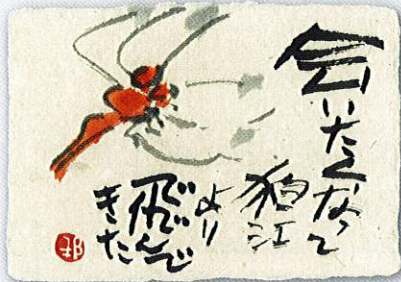 会いたくなって
狛江
より
飛んで
きた